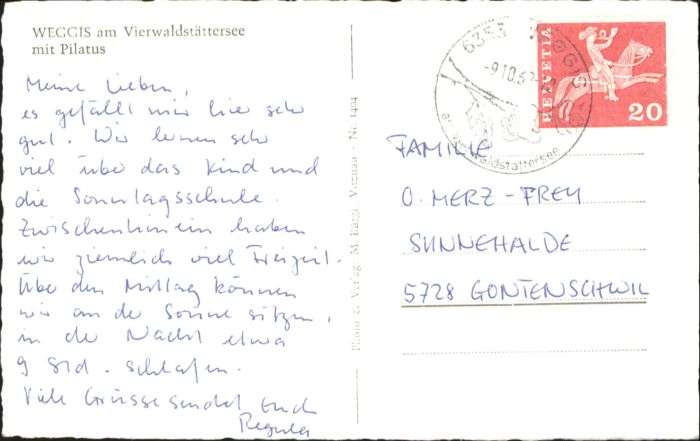 WEGGIS am Vierwaldstättersee
mit Pilatus
Meine Lieben,
es gefällt mir hier sehr
gut. Wir lernen sehr
viel über das Kind und
die Sonntagsschule.
Zwischenhinein haben
wir ziemlich viel Freizeit.
Über den Mittag können
wir an der Sonne sitzen,
in der Nacht etwa
9 Std. schlafen.
Viele Grüsse sendet Euch
Regula
Photo & Verlag M. Bärga Vitznau - Nr. 1404
6353 WEGGIS
-9.10.67
am Vierwaldstättersee
HELVETIA
20
FAMILIE
O. MERZ-FREY
SUNNEHALDE
5728 GONTENSCHWIL